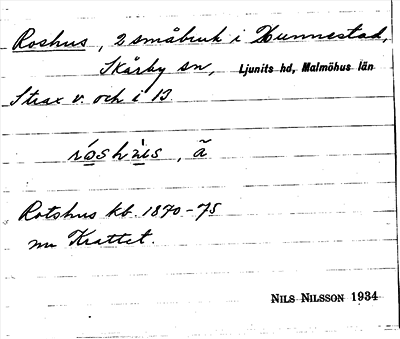 Roshus, 2 småbruk i Hunnestad,
Skårby sn, Ljunits hd, Malmöhus län
Strax v. och i B
róshùs, ã
Rotshus kb. 1870-75
nu Krattet.
NILS NILSSON 1934